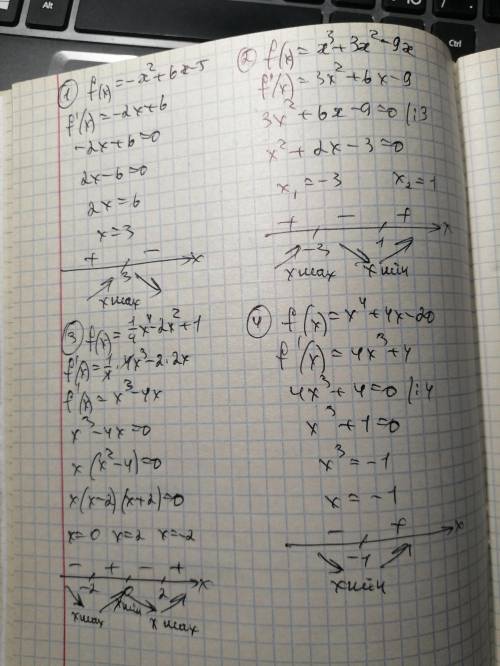 ① f(x)=-x²+6x-5
f'(x)=-2x+6
-2x+6=0
2x-6=0
2x=6
x=3
+ - x
3
x max
② f(x)=x³+3x²-9x
f'(x)=3x²+6x-9
3x²+6x-9=0 |:3
x²+2x-3=0
x₁=-3 x₂=1
+ - +
-3 1 x
x max x min
③ f(x)=1/4x⁴-2x²+1
f'(x)=1/4·4x³-2·2x
f'(x)=x³-4x
x³-4x=0
x(x²-4)=0
x(x-2)(x+2)=0
x=0 x=2 x=-2
- + - +
-2 0 2 x
x max x min x max
④ f(x)=x⁴+4x-20
f'(x)=4x³+4
4x³+4=0 |:4
x³+1=0
x³=-1
x=-1
- + x
-1
x min
Ctrl